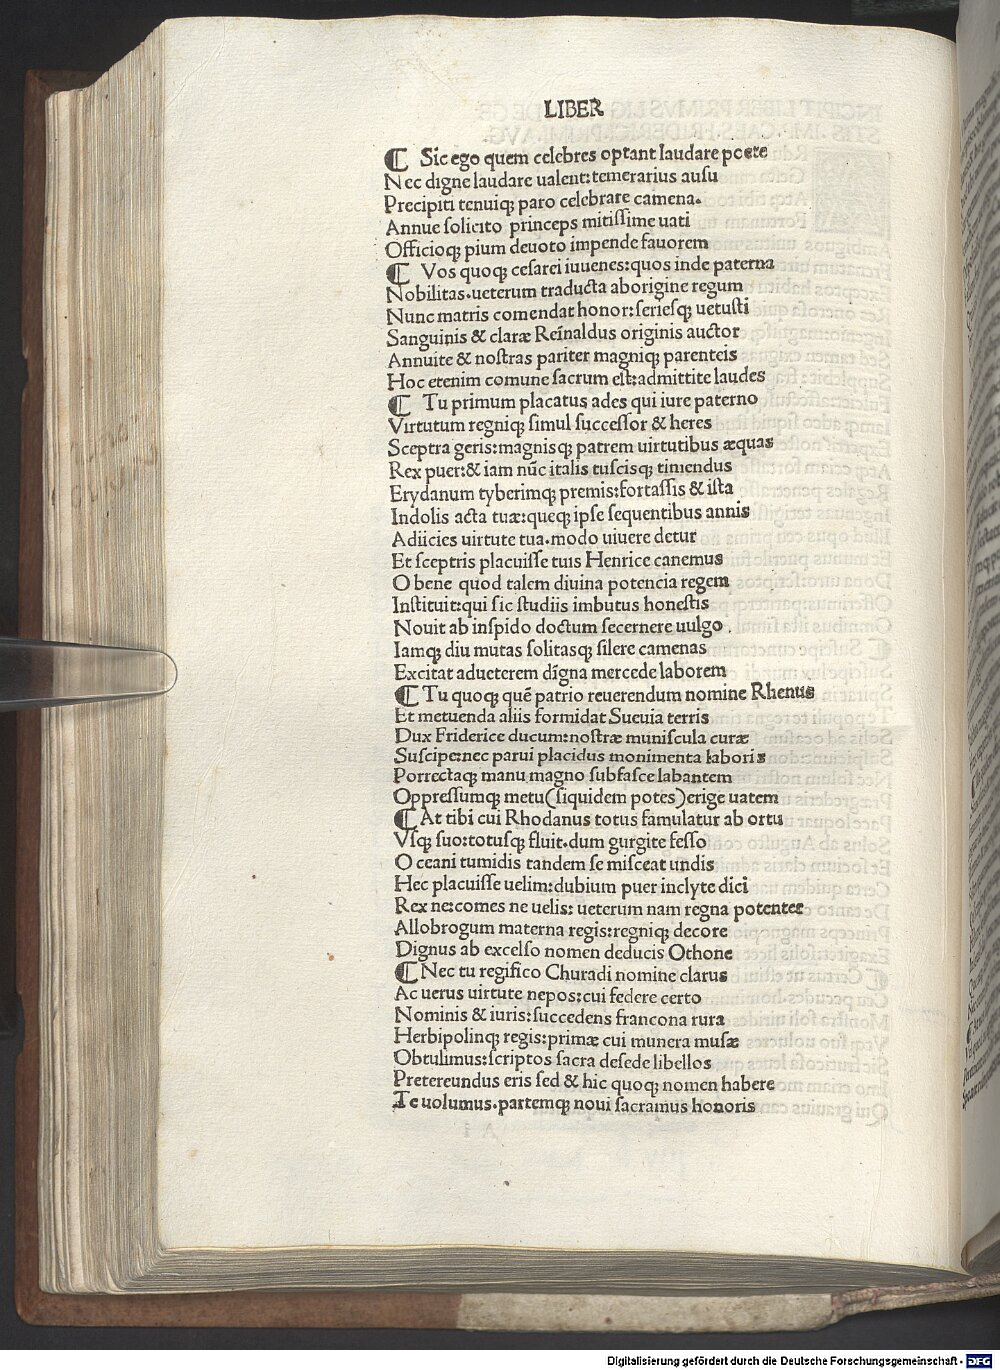 LIBER
¶ Sic ego quem celebres optant laudare poete
Nec digne laudare ualent: temerarius ausu
Precipiti tenuiqȝ paro celebrare camena.
Annue solicito princeps mitissime uati
Officioqȝ pium deuoto impende fauorem
¶ Vos quoqȝ cesarei iuuenes: quos inde paterna
Nobilitas. ueterum traducta aborigine regum
Nunc matris comendat honor: seriesqȝ uetusti
Sanguinis & claræ Reīnaldus originis auctor
Annuite & nostras pariter magniqȝ parenteis
Hoc etenim comune sacrum est: admittite laudes
¶ Tu primum placatus ades qui iure paterno
Virtutum regniqȝ simul successor & heres
Sceptra geris: magnisqȝ patrem uirtutibus æquas
Rex puer: & iam nūc italis tuscisqȝ timendus
Erydanum tyberimqȝ premis: fortassis & ista
Indolis acta tuæ: queqȝ ipse sequentibus annis
Adiicies uirtute tua. modo uiuere detur
Et sceptris placuisse tuis Henrice canemus
O bene quod talem diuina potencia regem
Instituit: qui sic studiis imbutus honestis
Nouit ab inspido doctum secernere uulgo
Iamqȝ diu mutas solitasqȝ silere camenas
Excitat aducterem dīgna mercede laborem
¶ Tu quoqȝ quē patrio reuerendum nomine Rhenus
Et metuenda aliis formidat Sueuia terris
Dux Friderice ducum: nostræ muniscula curæ
Suscipe: nec parui placidus monimenta laboris
Porrectaqȝ manu magno subfasce labantem
Oppressumqȝ metu (siquidem potes) erige uatem
¶ At tibi cui Rhodanus totus famulatur ab ortu
Vsqȝ suo: totusqȝ fluit. dum gurgite fesso
Oceani tumidis tandem se misceat undis
Hec placuisse uelim: dubium puer inclyte dici
Rex ne: comes ne uelis: ueterum nam regna potenter
Allobrogum materna regis: regniqȝ decore
Dignus ab excelso nomen deducis Othone
¶ Nec tu regifico Churadi nomine clarus
Ac uerus uirtute nepos: cui federe certo
Nominis & iuris: succedens francona rura
Herbipolinqȝ regis: primæ cui munera musæ
Obtulimus: scriptos sacra desede libellos
Pretereundus eris sed & hic quoqȝ nomen habere
Te uolumus. partemqȝ noui sacramus honoris
Digitalisierung gefördert durch die Deutsche Forschungsgemeinschaft - DFG